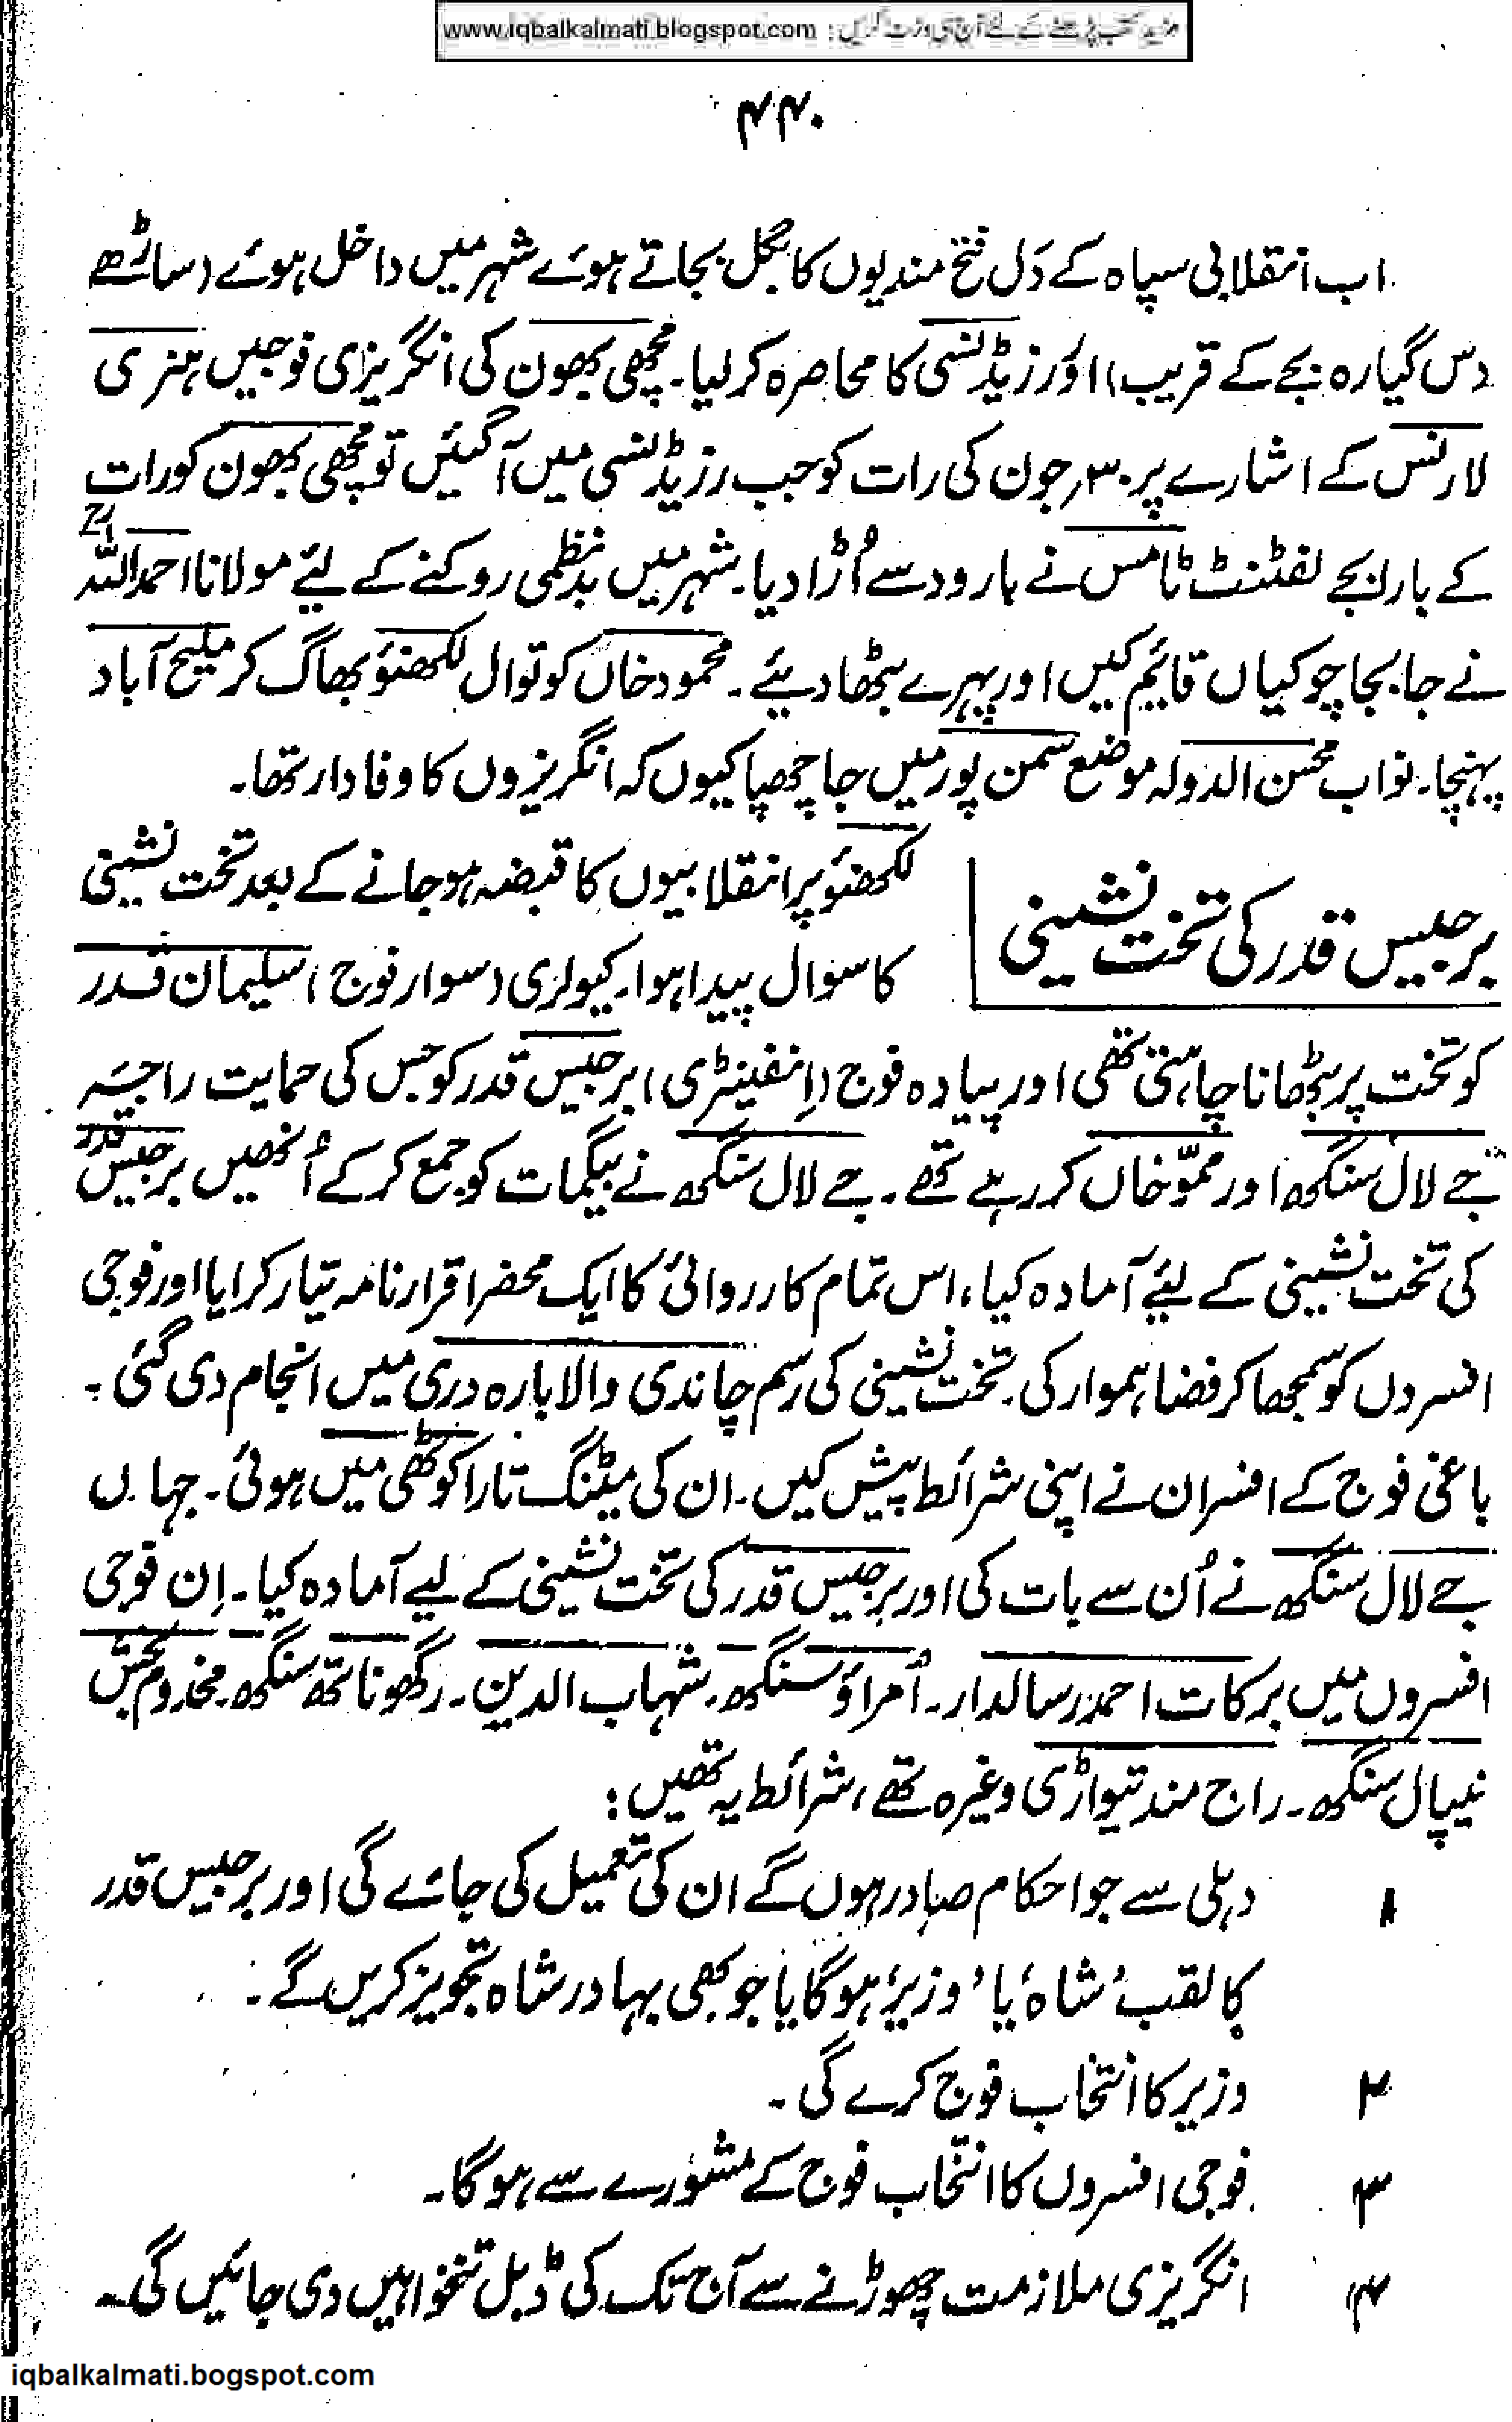 www.iqbalkalmati.blogspot.com : مزید کتب پڑھنے کے لئے آج ہی وزٹ کریں
۴۴۰
اب انقلابی سپاہ کے دَل فتح مندیوں کا بگل بجاتے ہوئے شہر میں داخل ہوئے (ساڑھے
دس گیارہ بجے کے قریب) اور رزیڈنسی کا محاصرہ کر لیا۔ مچھی بھون کی انگریزی فوجیں ہنری
لارنس کے اشارے پر ۳۰؍جون کی رات کو جب رزیڈنسی میں آگئیں تو مچھی بھون کو رات
کے بارہ بجے لفٹنٹ ٹامس نے بارود سے اُڑا دیا۔ شہر میں بدنظمی روکنے کے لئے مولانا احمد اللہ
نے جا بجا چوکیاں قایٔم کیں اور پہرے بٹھا دیئے۔ محمود خاں کوتوال لکھنؤ بھاگ کر ملیح آباد
پہنچا۔ نواب محسن الدولہ موضع سمن پور میں جا چھپا کیوں کہ انگریزوں کا وفادار تھا۔
برجیس قدر کی تخت نشینی
لکھنؤ پر انقلابیوں کا قبضہ ہو جانے کے بعد تخت نشینی
کا سوال پیدا ہوا۔ کیولری (سوار فوج) سلیمان قدر
کو تخت پر بٹھانا چاہتی تھی اور پیادہ فوج (اِنفینٹری) برجیس قدر کو جس کی حمایت راجہ
جے لال سنگھ اور ممّو خاں کر رہے تھے۔ جے لال سنگھ نے بیگمات کو جمع کرکے اُنھیں برجیس قدر
کی تخت نشینی کے لئے آمادہ کیا، اس تمام کارروائی کا ایک محضر اقرار نامہ تیار کرایا اور فوجی
افسروں کو سمجھا کر فضا ہموار کی۔ تخت نشینی کی رسم چاندی والا بارہ دری میں انجام دی گئی۔
باغی فوج کے افسران نے اپنی شرائط پیش کیں۔ ان کی میٹنگ تارا کوٹھی میں ہوئی۔ جہاں
جے لال سنگھ نے اُن سے بات کی اور برجیس قدر کی تخت نشینی کے لیے آمادہ کیا۔ اِن فوجی
افسروں میں برکات احمد رسالدار۔ اُمراؤ سنگھ۔ شہاب الدین۔ رگھوناتھ سنگھ۔ مخدوم بخش
نیپال سنگھ۔ راج مند تیواڑی وغیرہ تھے، شرائط یہ تھیں:
۱ دہلی سے جو احکام صادر ہوں گے ان کی تعمیل کی جائے گی اور برجیس قدر
کا لقب 'شاہ' یا 'وزیر' ہوگا یا جو بھی بہادر شاہ تجویز کریں گے۔
۲ وزیر کا انتخاب فوج کرے گی۔
۳ فوجی افسروں کا انتخاب فوج کے مشورے سے ہوگا۔
۴ انگریزی ملازمت چھوڑنے سے آج تک کی ڈبل تنخواہیں دی جائیں گی۔
iqbalkalmati.bogspot.com